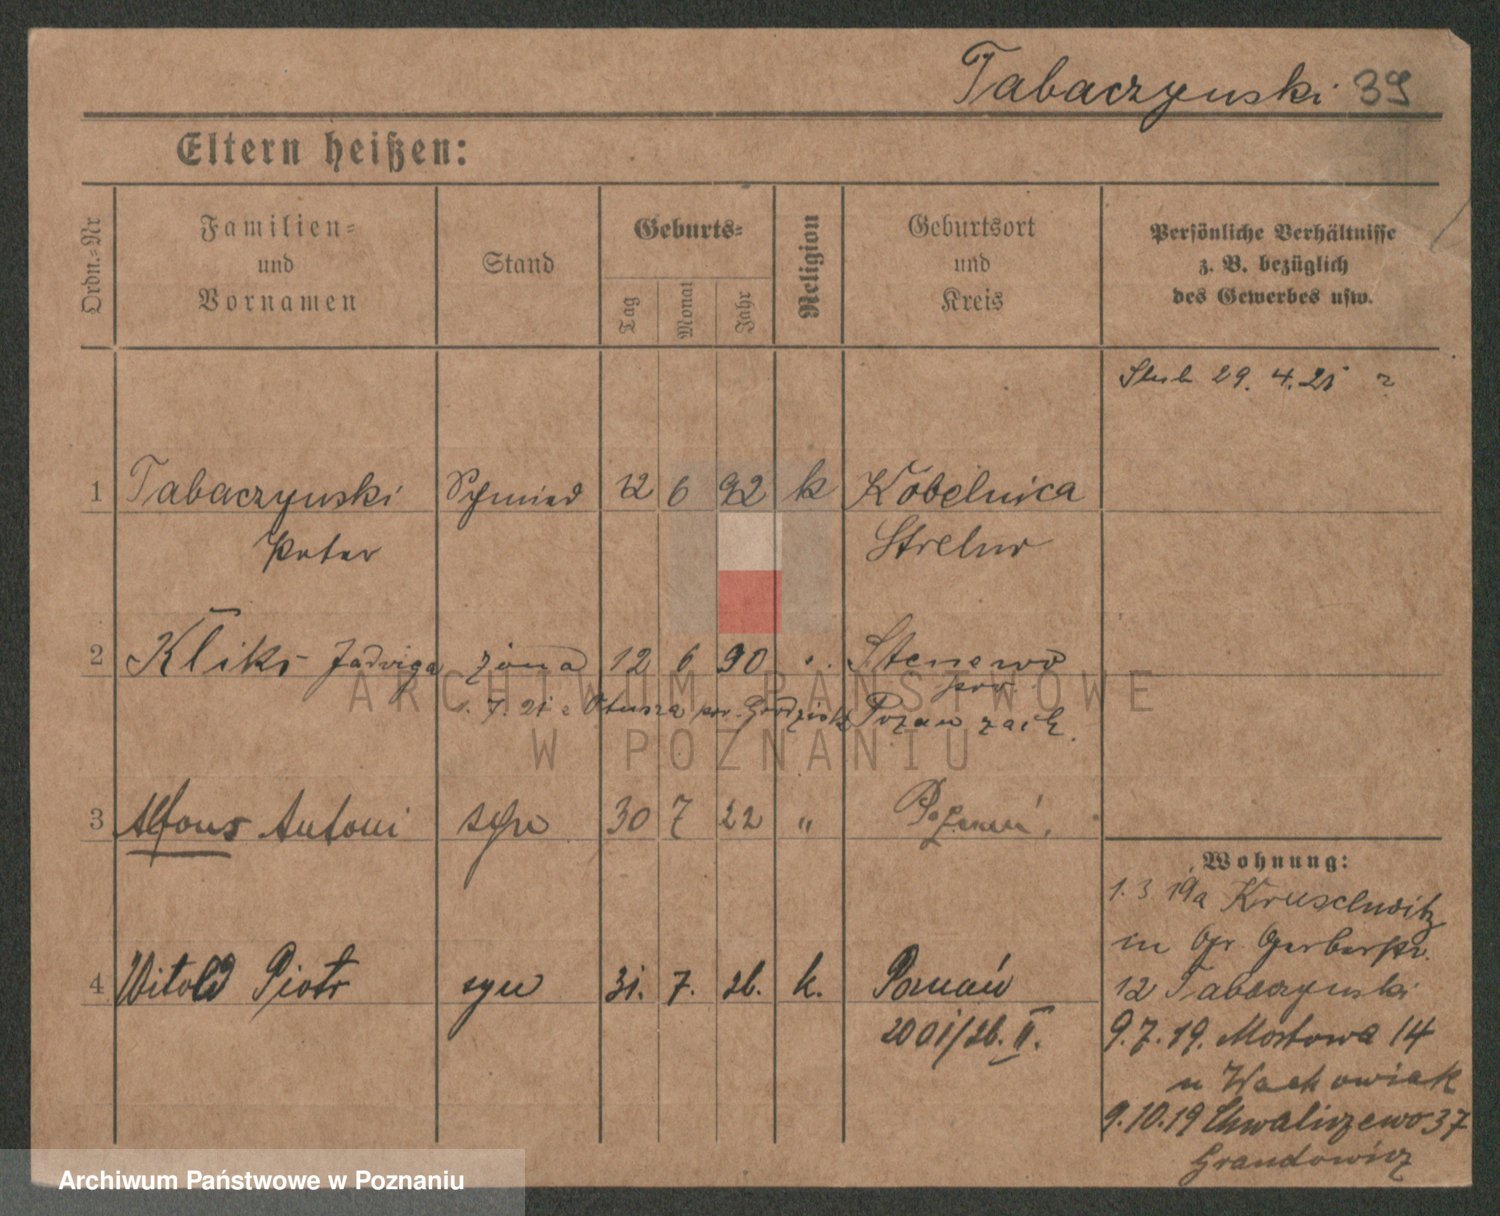 Tabaczynski 39
Eltern heißen:
Ordn.-Nr
Familien-
und
Vornamen
Stand
Geburts-
Tag
Monat
Jahr
Religion
Geburtsort
und
Kreis
Persönliche Verhältnisse
z. B. bezüglich
des Gewerbes usw.
29. 4. 21
1 Tabaczynski Schmied 12 6 92 k Kobelnica
Peter Strelno
2 Kliks Jadwiga żona 12 6 90 Stenewo
pow.
7. 21 z Otusza pow. Grodzisk Poznań zach.
3 Alfons Antoni syn 30 7 22 " Poznań.
4 Witold Piotr syn 31. 7. 26. k. Poznań
2001/26. II.
Wohnung:
1. 3 19a Kruschwitz
in Gr. Gerberstr.
12 Tabaczynski
9. 7. 19. Mostowa 14
u Wachowiak
9. 10. 19 Chwaliszewo 37
Grandowicz
ARCHIWUM PAŃSTWOWE
W POZNANIU
Archiwum Państwowe w Poznaniu